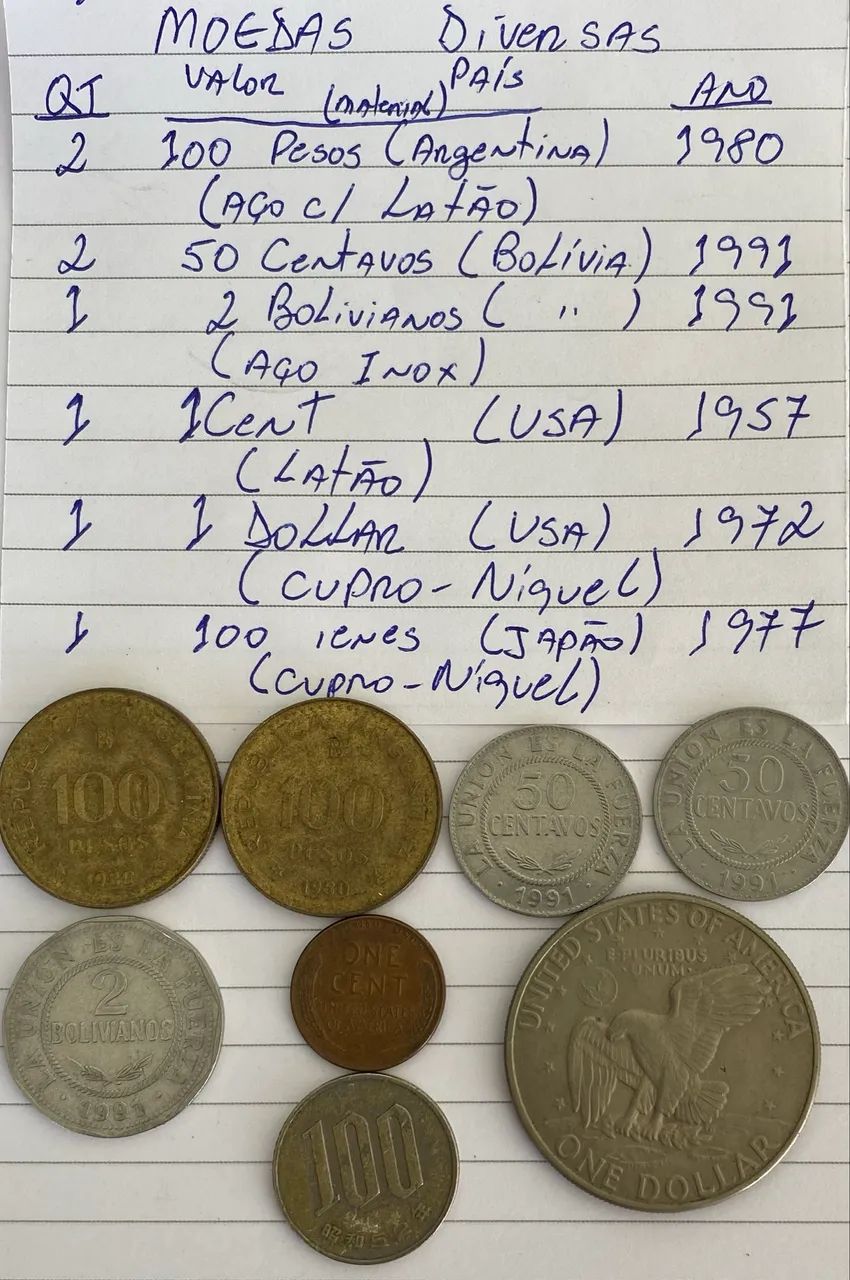 MOEDAS DIVERSAS
QT VALOR (MATERIAL) PAÍS ANO
2 100 PESOS (ARGENTINA) 1980
(AÇO C/ LATÃO)
2 50 CENTAVOS (BOLÍVIA) 1991
1 2 BOLIVIANOS ( " ) 1991
(AÇO INOX)
1 1 CENT (USA) 1957
(LATÃO)
1 1 DOLLAR (USA) 1972
(CUPRO-NÍQUEL)
1 100 IENES (JAPÃO) 1977
(CUPRO-NÍQUEL)
REPUBLICA ARGENTINA
100
PESOS
1980
REPUBLICA ARGENTINA
100
PESOS
1980
LA UNION ES LA FUERZA
50
CENTAVOS
1991
LA UNION ES LA FUERZA
50
CENTAVOS
1991
LA UNION ES LA FUERZA
2
BOLIVIANOS
1991
ONE
CENT
UNITED STATES
OF AMERICA
UNITED STATES OF AMERICA
E PLURIBUS
UNUM
ONE DOLLAR
100
昭和五